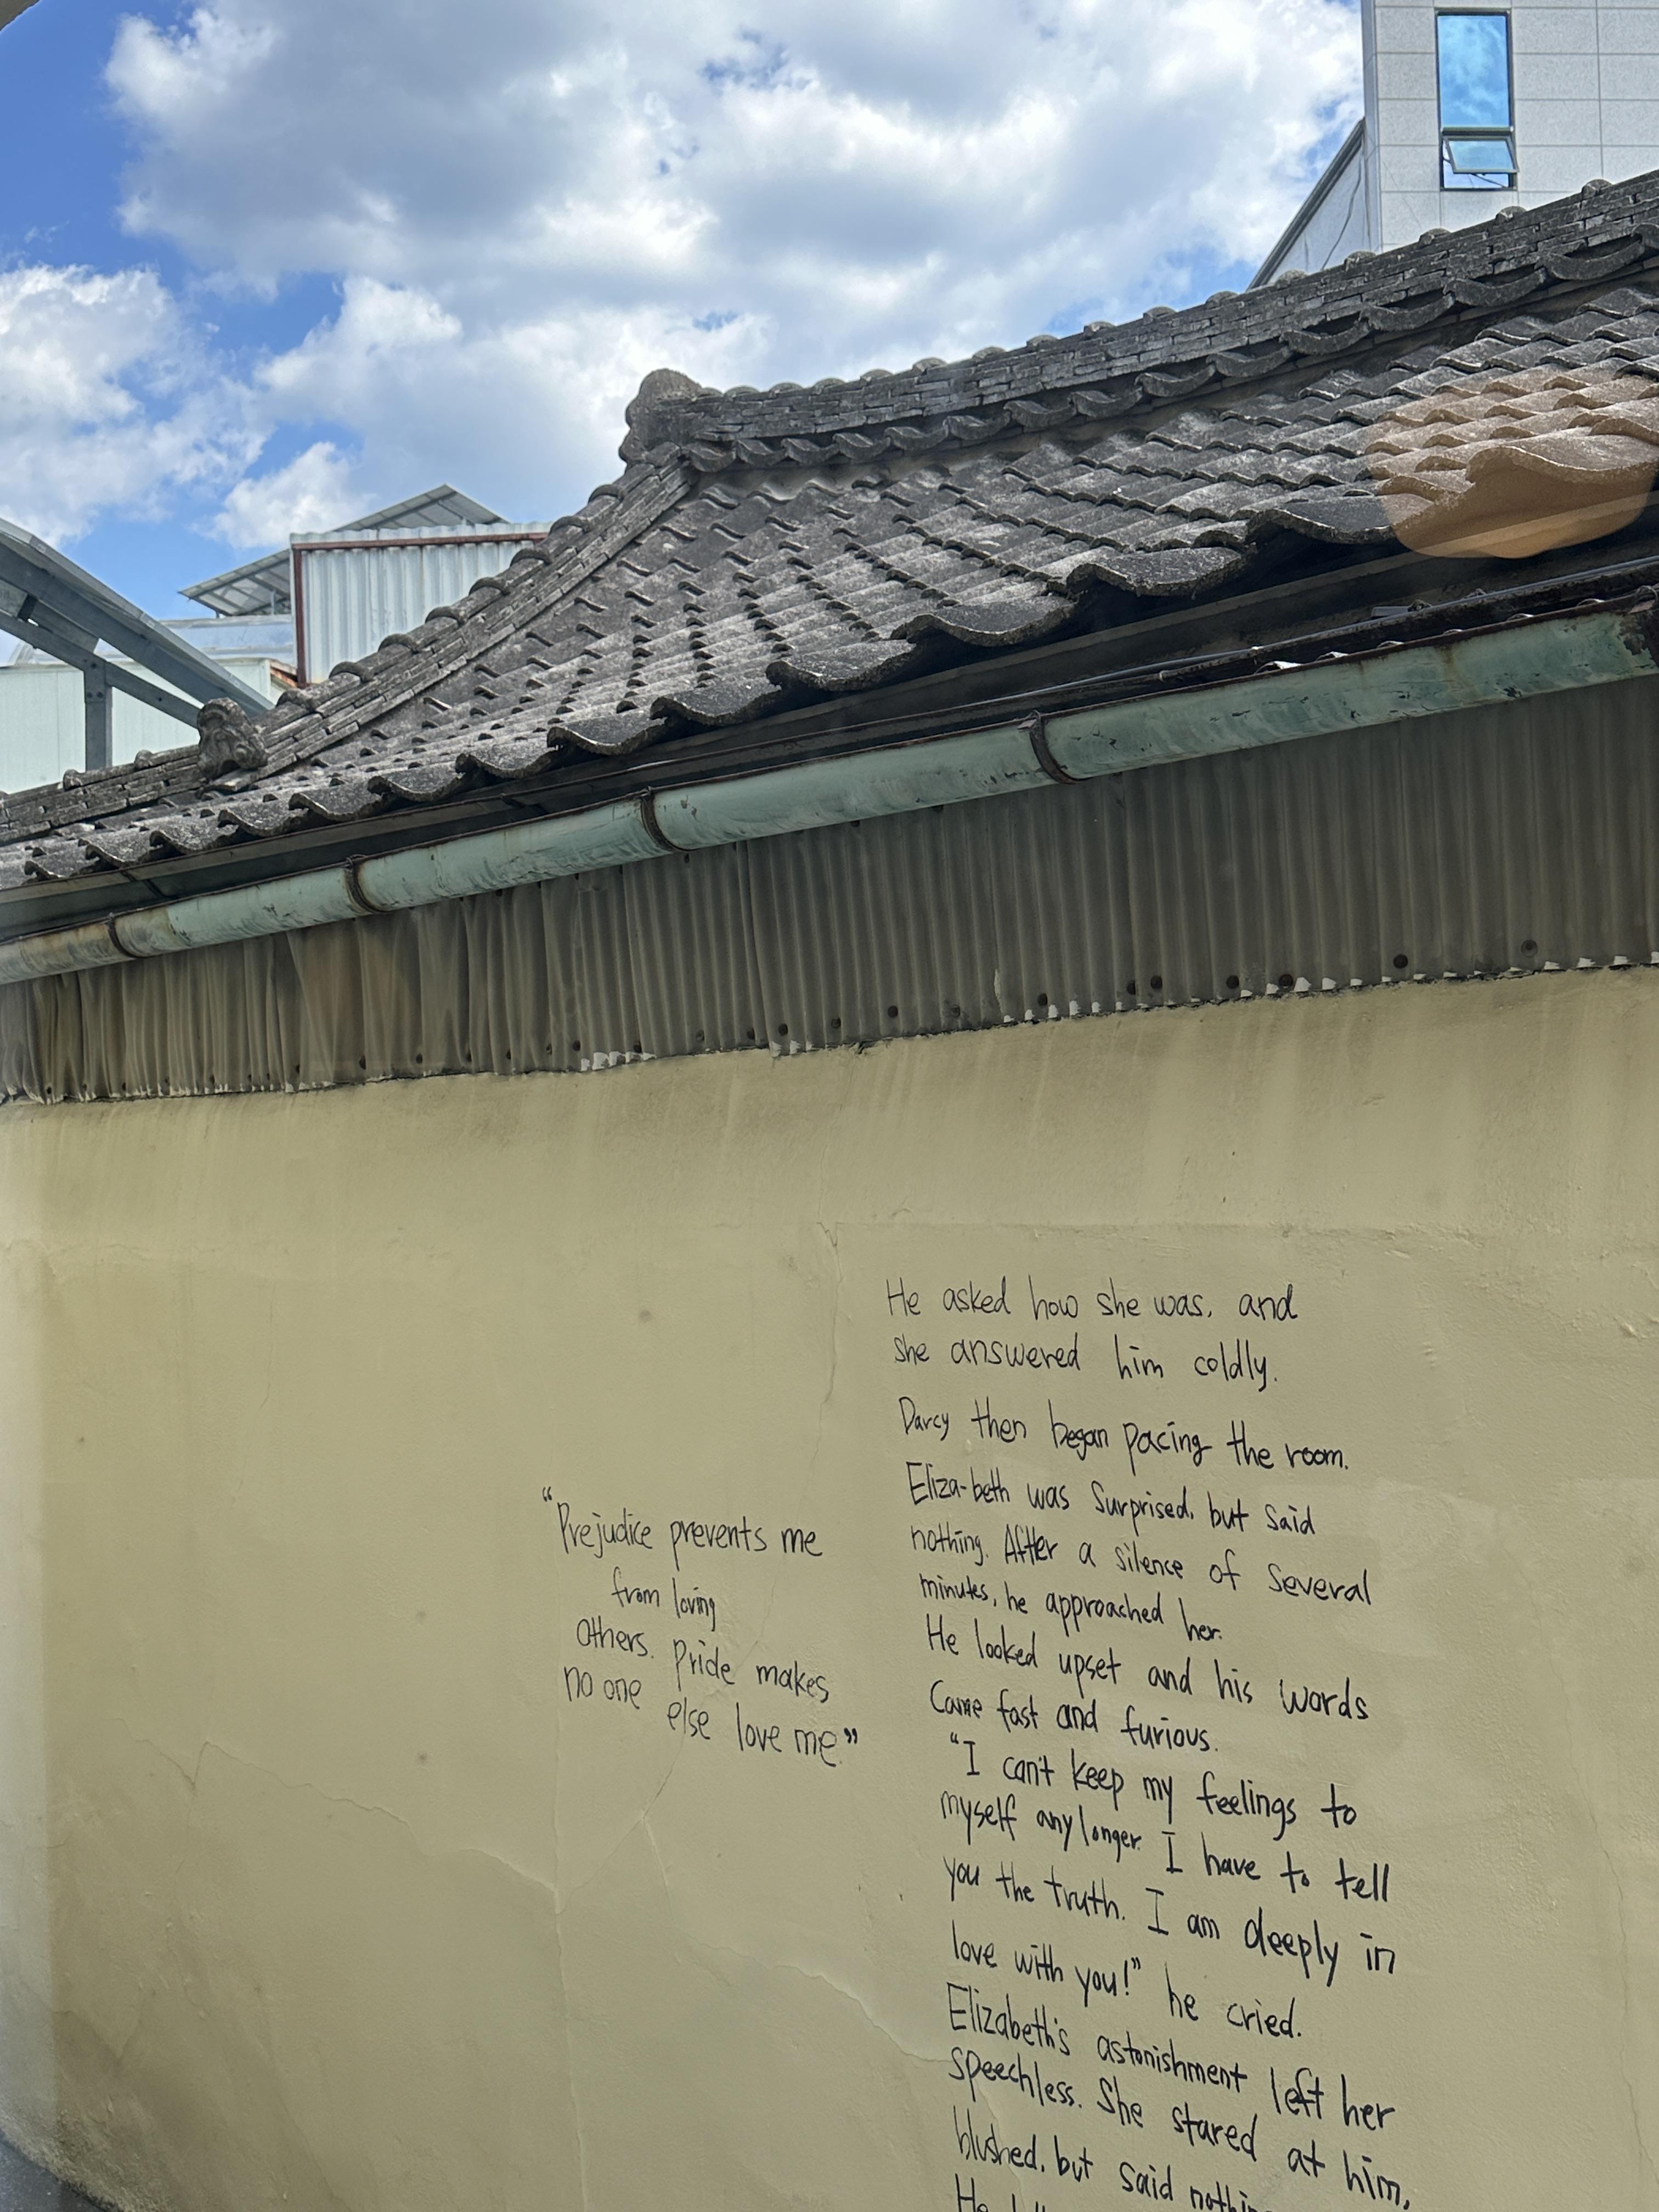 "Prejudice prevents me
from loving
others. Pride makes
no one else love me"
He asked how she was, and
she answered him coldly.
Darcy then began pacing the room.
Eliza-beth was Surprised, but said
nothing. After a silence of several
minutes, he approached her.
He looked upset and his words
Came fast and furious.
"I can't keep my feelings to
myself any longer. I have to tell
you the truth. I am deeply in
love with you!" he cried.
Elizabeth's astonishment left her
speechless. She stared at him,
blushed, but said
He